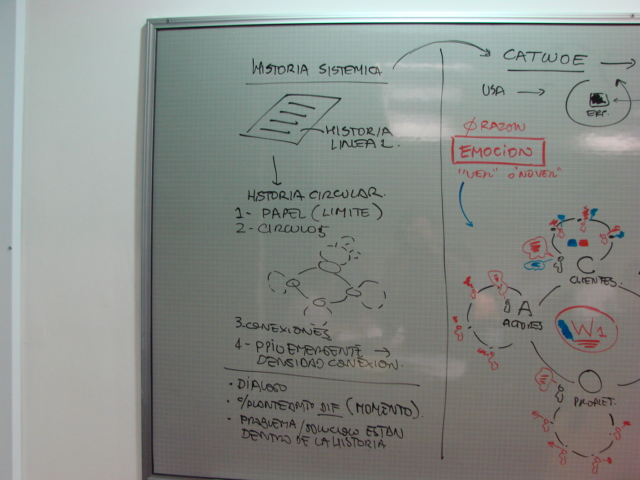 HISTORIA SISTEMICA
HISTORIA
LINEAL
HISTORIA CIRCULAR.
1- PAPEL (LIMITE)
2- CIRCULOS
3. CONEXIONES
4- PPIO EMERGENTE →
DENSIDAD CONEXION.
- DIALOGO
- DIF (MOMENTO).
- PROBLEMA/SOLUCION ESTAN
DENTRO DE LA HISTORIA
CATWOE →
USA →
ERP.
Ø RAZON
EMOCION
"VER" O "NO VER"
C
CLIENTES.
A
ACTORES
W1
O
PROPIET.